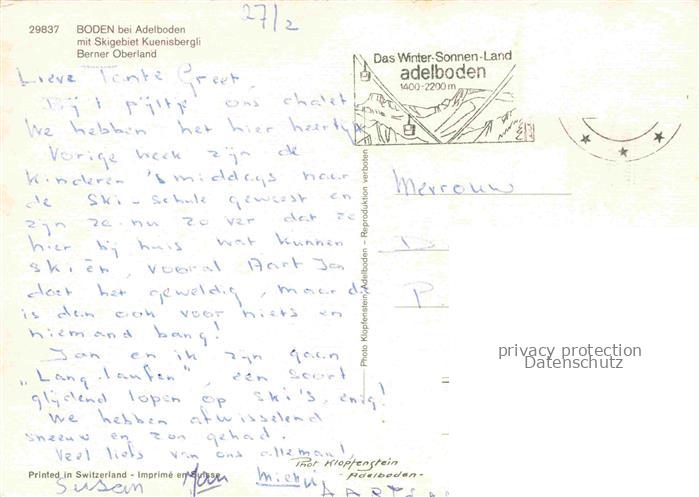 27/2
29837 BODEN bei Adelboden
mit Skigebiet Kuenisbergli
Berner Oberland
Das Winter-Sonnen-Land
adelboden
1400-2200 m
Lieve Tante Greet,
Bij 't pijltje ons chalet.
We hebben het hier heerlijk
Vorige week zijn de
kinderen 's middags naar
de Ski-schule geweest en
zijn ze nu zo ver dat ze
hier bij huis wat kunnen
skiën, vooral Aart Jan
doet het geweldig, maar die
is dan ook voor niets en
niemand bang!
Jan en ik zijn gaan
"Lang-laufen", een soort
glijdend lopen op ski's, enig!
We hebben afwisselend
sneeuw en zon gehad.
Veel liefs van ons allemaal!
Susan Jan
Mevrouw
D
P.
Photo Klopfenstein, Adelboden – Reproduktion verboten
privacy protection
Datenschutz
Phot Klopfenstein
- Adelboden -
Printed in Switzerland - Imprimé en Suisse